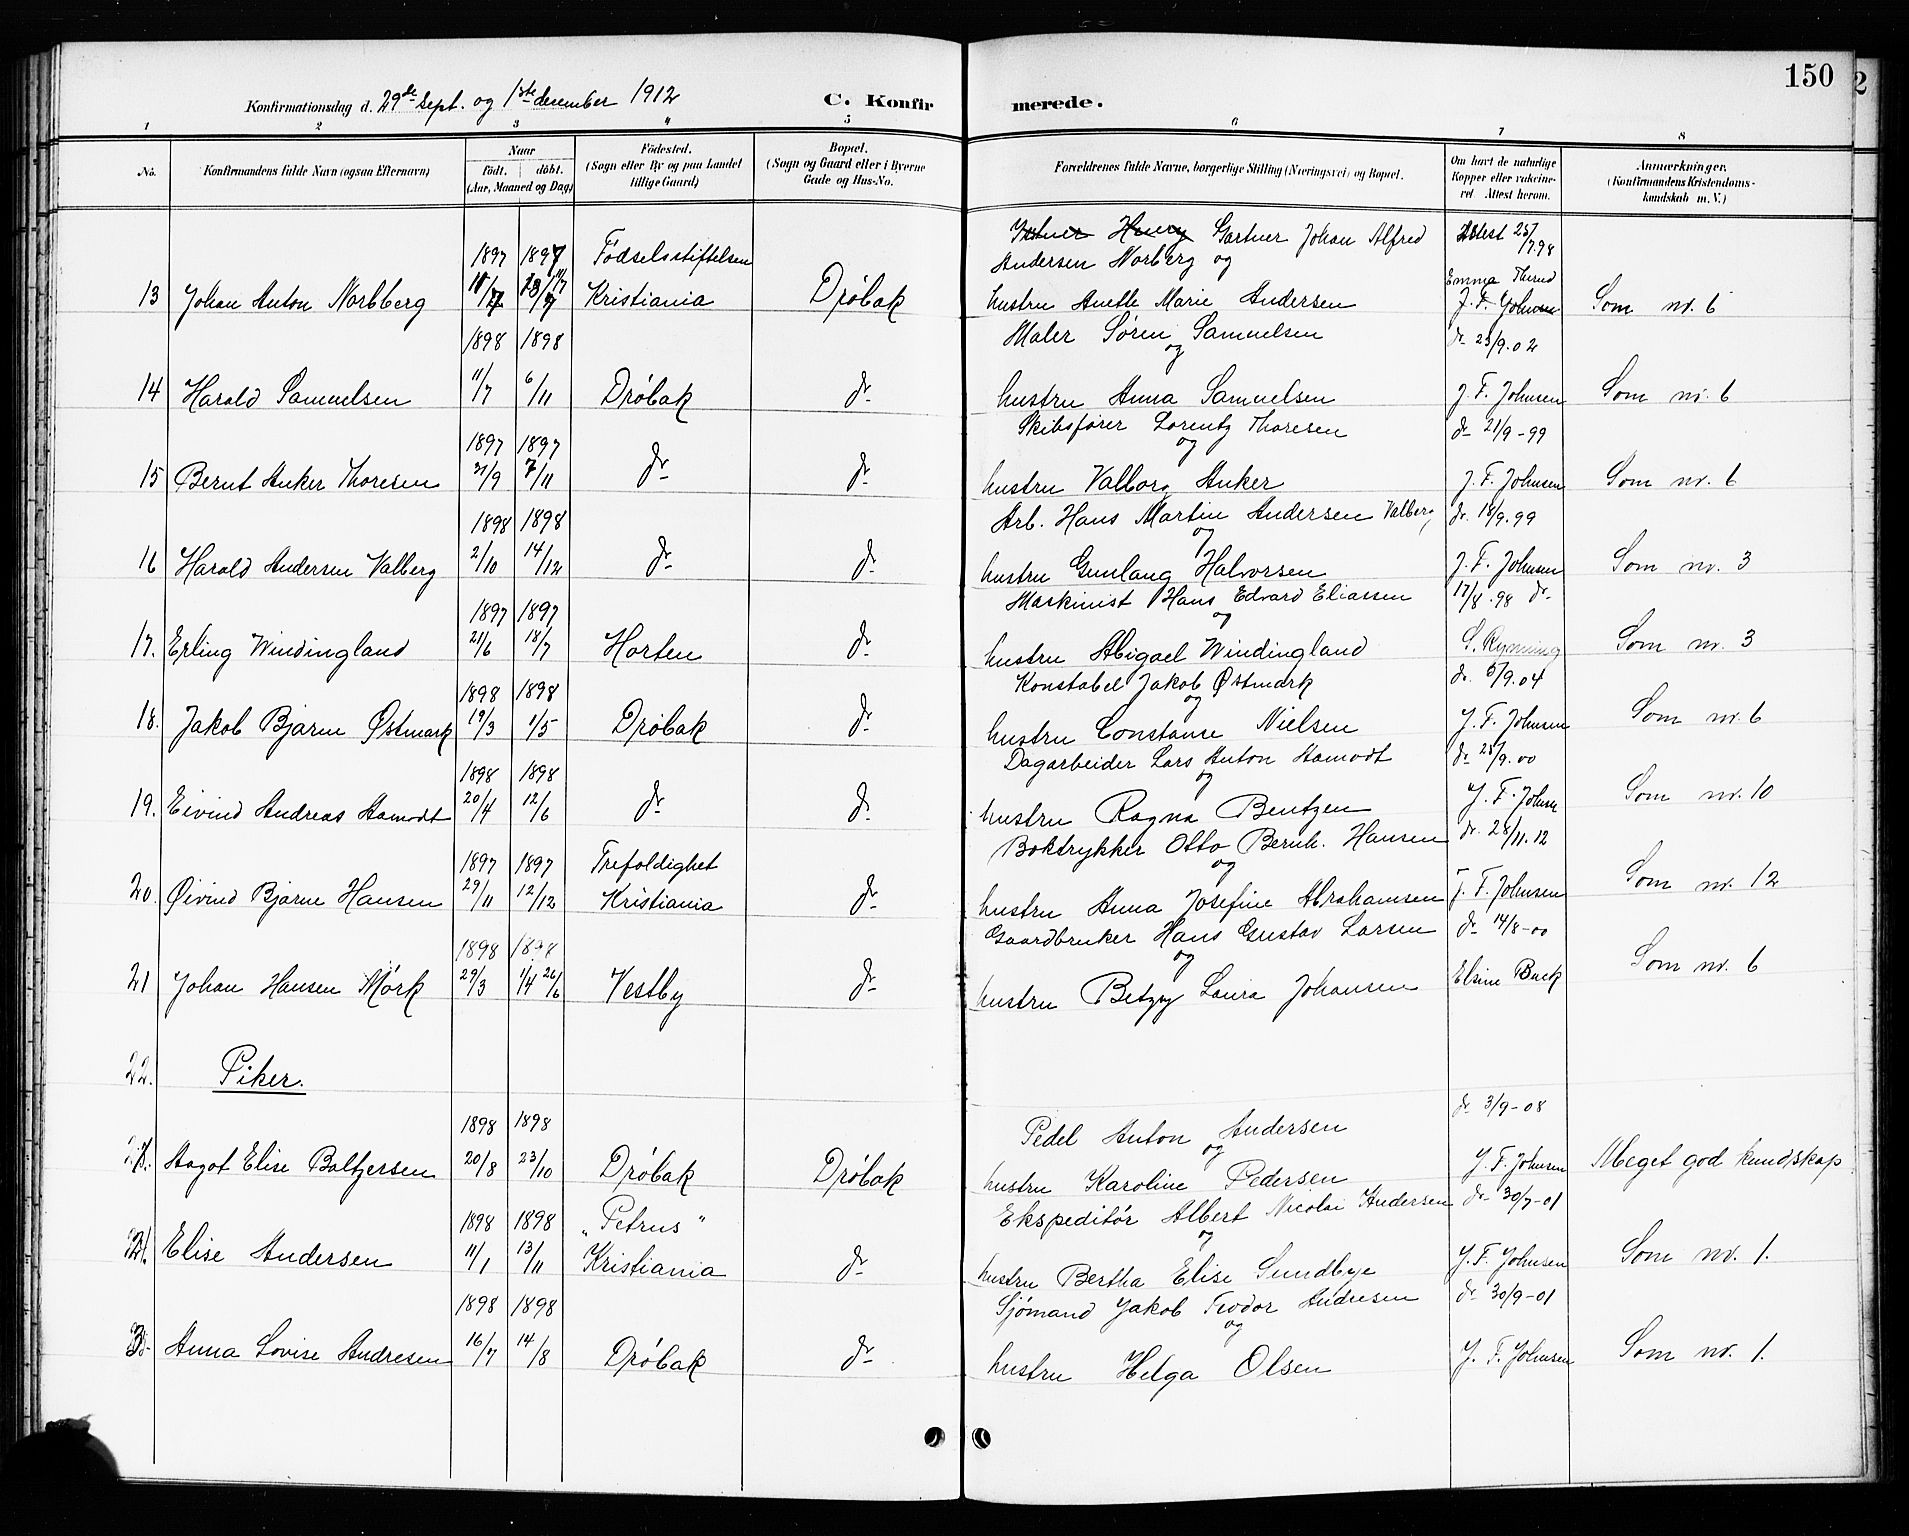 150
Konfirmationsdag d. 29de Sept. og 1ste december 1912 C. Konfirmerede.
1 2 3 4 5 6 7 8
No. Konfirmandens fulde Navn (ogsaa Efternavn) Naar født. døbt. (Aar, Maaned og Dag) Fødested. (Sogn eller By og paa Landet tillige Gaard) Bopæl. (Sogn og Gaard eller i Byerne Gade og Hus-No. Forældrenes fulde Navne, borgerlige Stilling (Næringsvei) og Bopæl. Om havt de naturlige Kopper eller vaksineret Attest herom. Anmærkninger. (Konfirmandens Kristendomskundskab m. V.)
Henry Gartner Johan Alfred Attest 25/7 98
1897 1897 Fødselsstiftelsen Andersen Norberg og Emma Thrud
13 Johan Anton Norbberg Kristiania Drøbak hustru Anette Marie Andersen J. F. Johnsen Som nr. 6
1898 1898 Maler Søren Samuelsen do 23/9.02
og
14 Harald Samuelsen 11/7 6/11 Drøbak do hustru Anna Samuelsen J. F. Johnsen Som nr. 6
1897 1897 Skibsfører Lorentz Thoresen do 21/9-99
og
15 Bernt Anker Thoresen 21/9 7/11 do do hustru Valborg Anker J. F. Johnsen Som nr. 6
1898 1898 Arb. Hans Martin Andersen Valberg do 18/9.99
og
16 Harald Andersen Valberg 2/10 14/12 do do hustru Gunlaug Halvorsen J. F. Johnsen Som nr. 3
1897 1897 Maskinist Hans Edvard Eliassen 17/8.98 do
og
17. Erling Windingland 21/6 18/7 Horten do hustru Abigael Windingland S. Rynning Som nr. 3
1898 1898 Konstabel Jakob Østmark do 5/9.04
og
18. Jakob Bjarne Østmark 19/3 1/5 Drøbak do hustru Constanse Nielsen J. F. Johnsen Som nr. 6
1898 1898 Dagarbeider Lars Anton Aamodt do 25/9.00
og
19. Eivind Andreas Aamodt 20/4 12/6 do do hustru Ragna Bentzen J. F. Johnsen Som nr. 10
1897 1897 Trefoldighet Boktrykker Otto Bernh. Hansen do 28/11.12
og
20. Øivind Bjarne Hansen 29/11 12/12 Kristiania do hustru Anna Josefine Abrahamsen J. F. Johnsen Som nr. 12
1898 1898 Gaardbruker Hans Gustav Larsen do 14/8-00
og
21 Johan Hansen Mørk 29/3 1/4 26/6 Vestby do hustru Betzy Laura Johansen Elsine Buck Som nr. 6
22. Piker.
do 3/9-08
1898 1898 Pedel Anton Andersen
og
Aagot Elise Baltzersen 20/8 23/10 Drøbak Drøbak hustru Karoline Pedersen J. F. Johnsen Meget god kundskap
1898 1898 „Petrus" Ekspeditør Albert Nicolai Andersen do 30/7-01
og
Elise Andersen 11/1 13/11 Kristiania do hustru Bertha Elise Sundbye J. F. Johnsen Som nr. 1.
1898 1898 Sjømand Jakob Teodor Andresen do 30/9-01
og
3. Anna Lovise Andresen 16/7 14/8 Drøbak do hustru Helga Olsen J. F. Johnsen Som nr. 1.